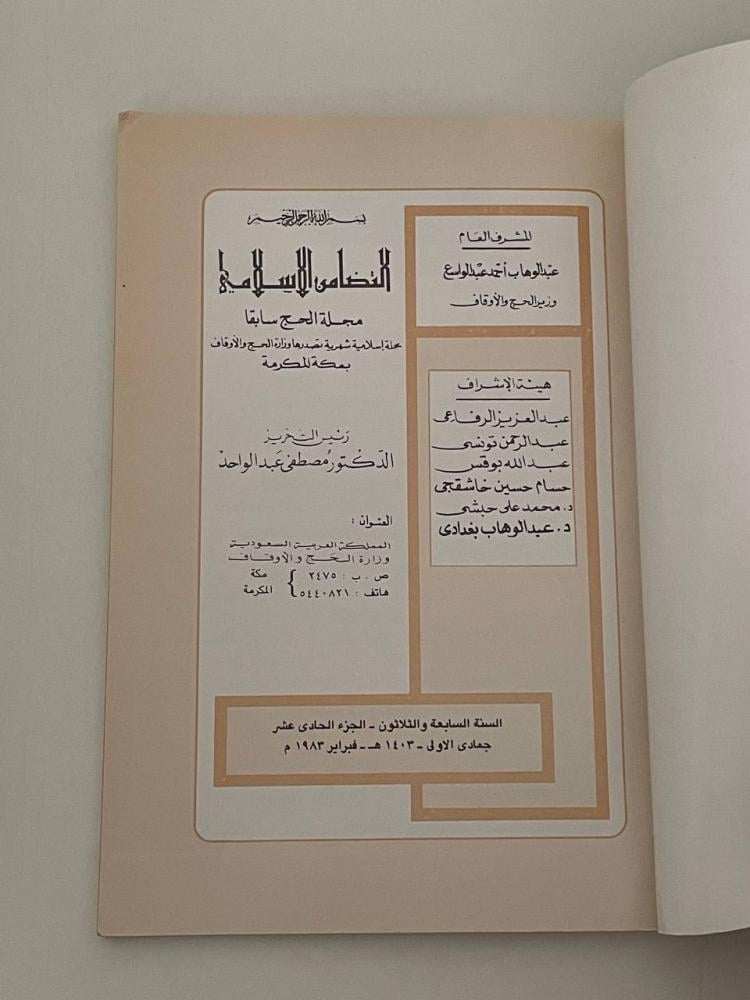 بسم الله الرحمن الرحيم
التضامن الإسلامي
مجلة الحج سابقا
مجلة إسلامية شهرية تصدرها وزارة الحج والأوقاف
بمكة المكرمة
رئيس التحرير
الدكتور مصطفى عبد الواحد
العنوان :
المملكة العربية السعودية
وزارة الحج والأوقاف
ص . ب : ٢٤٧٥
هاتف : ٥٤٤٠٨٢١
مكة
المكرمة
المشرف العام
عبد الوهاب أحمد عبد الواسع
وزير الحج والأوقاف
هيئة الإشراف
عبد العزيز الرفاعي
عبد الرحمن تونسي
عبد الله بوقس
حسام حسين خاشقجي
د. محمد على حبشي
د. عبد الوهاب بغدادى
السنة السابعة والثلاثون - الجزء الحادى عشر
جمادى الاولى - ١٤٠٣ هـ - فبراير ١٩٨٣ م